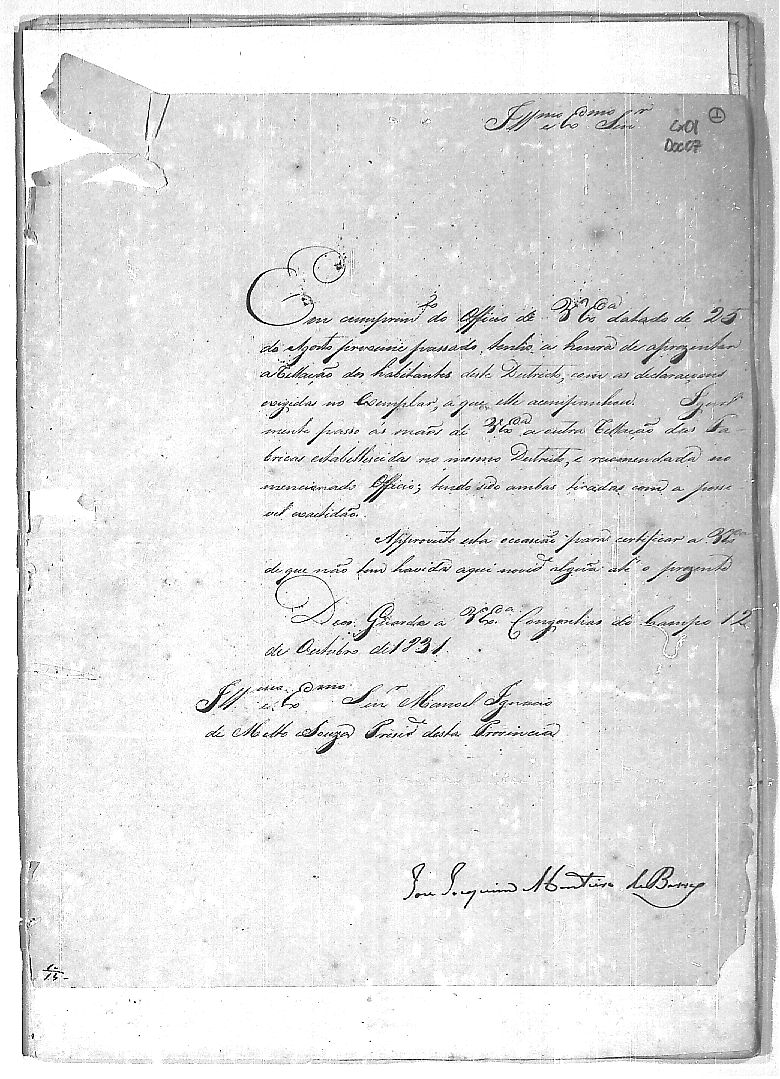 Ill.mo e Ex.mo Sen.r
Cx01
Doc07
1
Em cumprim.to do Officio de V. Ex.ca datado de 25
de Agosto proximo passado, tenho a honra de aprezentar
a Rellação dos habitantes deste Destricto, com as declaraçoens
exigidas no Exemplar, a que elle acompanhou. Igual-
mente passo ás maons de V. Ex.ca a outra Rellação das Fa-
bricas estabellecidas no mesmo Destricto, e recomendada no
mencionado Officio; tendo sido ambas tiradas com a possi
vel exactidão.
Approveito esta occasião para certificar a V. Ex.ca
de que não tem havido aqui novid.e algũa até o prezente
Deos Guarde a V. Ex.ca Congonhas do Campo 12
de Outubro de 1831.
Ill.mo e Ex.mo Sen.r Manoel Ignacio
de Mello e Souza Prezid.e desta Provincia
Joze Joaquim Monteiro de Barros